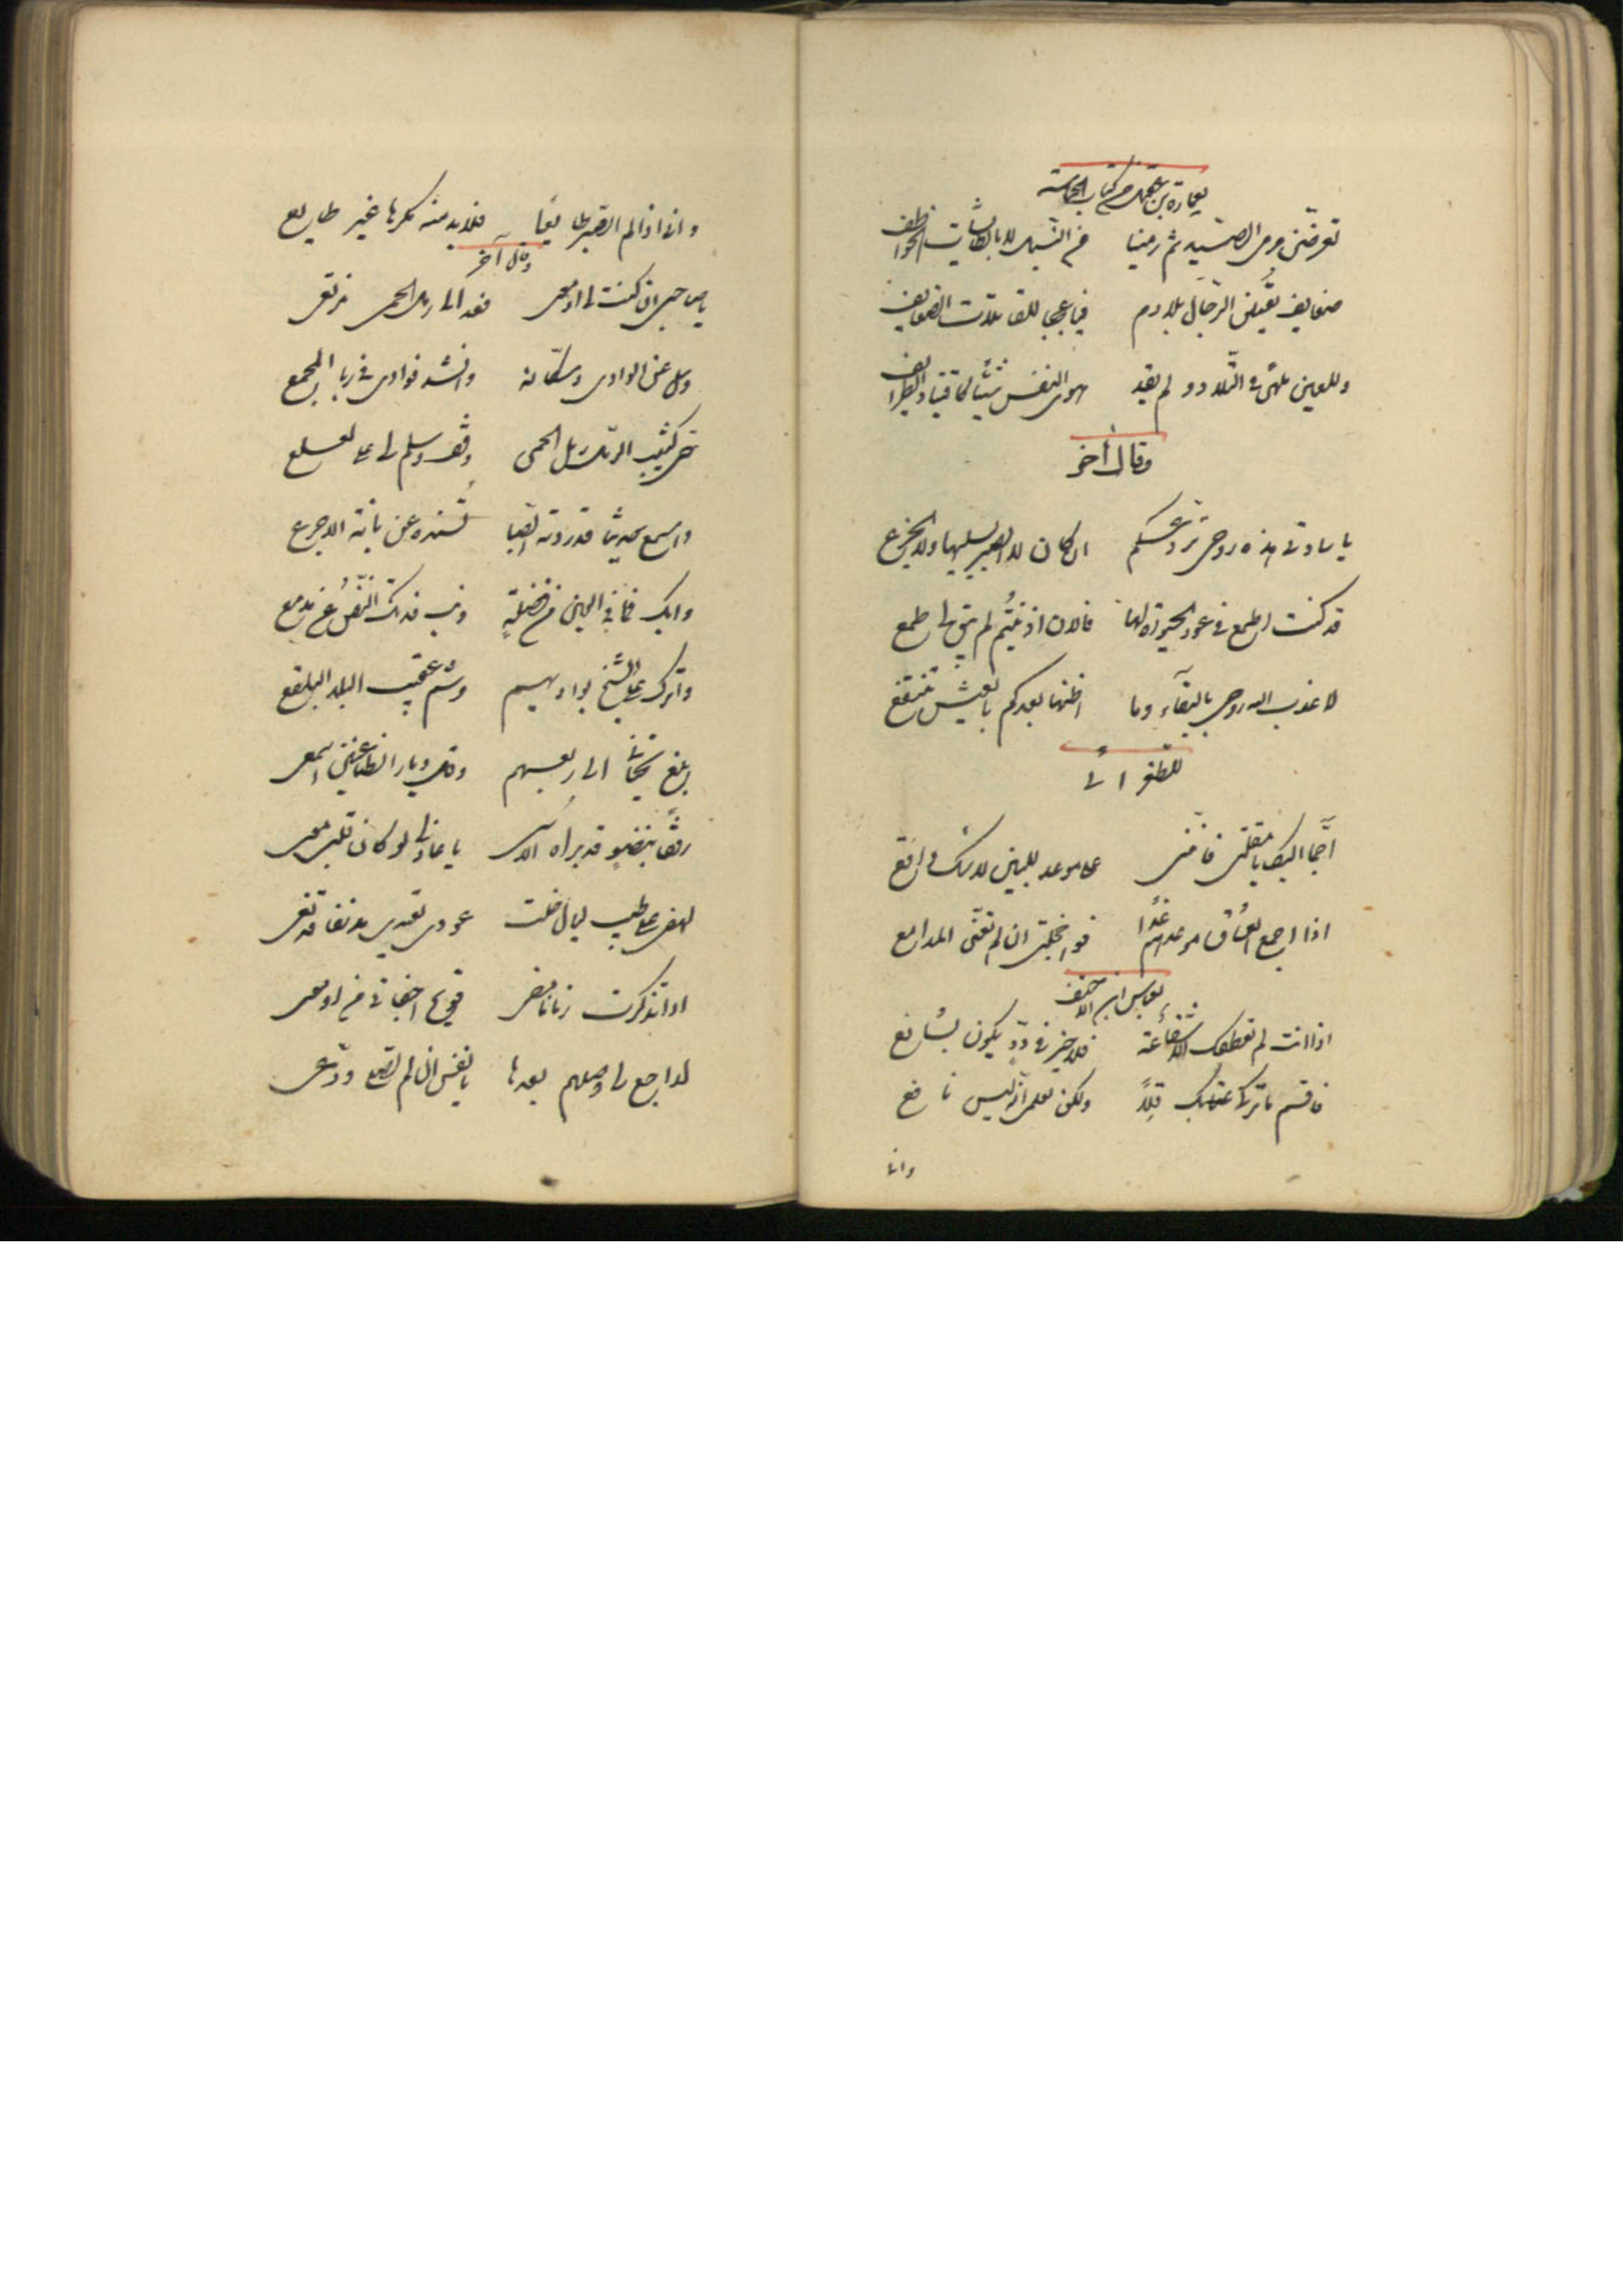 لعمارة بن عقيل من كتاب الحماسة
تعرضن مرمى الصيد ثم رميننا من النبل لا بالطايشات الخواطف
ضعايف يقتلن الرجال بلا دم فيا عجبا للقاتلات الضعايف
وللعين ملهى في التلاد ولم يقد هوى النفس شيئا كاقتياد الطرايف
وقال آخر
يا سادتي هذه روحي تودعكم اذ كان لا الصبر يسليها ولا الجزع
قد كنت اطمع في عود الحيوة لها فالان اذ غبتم لم يبق لي طمع
لا عذب الله روحي بالبقآء وما اظنها بعدكم بالعيش تنتفع
للطغرائي
اجما البكا يا مقلتي فانني على موعد للبين لا شك واقع
اذا اجمع العشاق موعدهم غدا فواخجلتي ان لم تعنى المدامع
لعباس ابن الاحنف
اذا انت لم تعطفك الا شفاعة فلا خير في ود يكون بشافع
فاقسم ما تركى عتابك قلا ولكن لعلمى انه ليس نافع
وانى
وانى اذا لم الصبر طايعا فلا بد منه مكرها غير طايع
وقال آخر
يا صاحبي ان كنت لى او معى فعد الى رمل الحمى نرتعى
وسل عن الوادى وسكانه وانشد فوادى في ربا المجمع
حي كثيب الرمل رمل الحمى وقف وسلم لى على لعلع
واسمع حديثا قد روته الصبا تسنده عن بانة الاجرع
وابك فما في العين من فضلة ونب فدتك النفس عن مدمعى
واترك على الشيخ بواديهم وشم عقيب البلد البلقع
ابلغ تحياتى الى ربعهم وقل ديار الظاعنين اسمعى
رفقا بنضو قد براه الاسى يا عاذلى لو كان قلبي معى
لهفي على طيب ليال خلت عودى تعودى مدنفا قد نعى
اذا تذكرت زمانا مضى فويح اجفانى من ادمعى
لا رجع لى وصلهم بعدها يا نفس ان لم ودعى